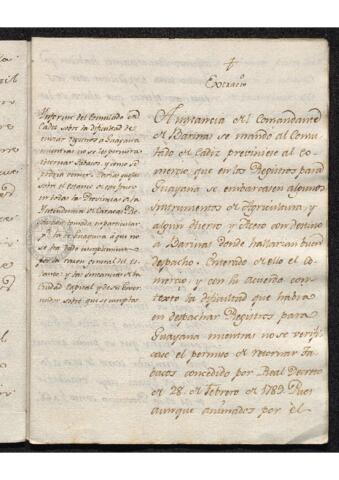 Extracto
Informe del Consulado de
Cadiz sobre la dificultad de
Registros a Guayana
mientras no se les permita
retornar tabacos, y
sobre el estanco de este fruto
en todas las Provincias de la
Intendencia de Caracas.
se ha dado cumplimiento
por la razon general del es
tanto; y las instancias de la
Ciudad Capital y de su Gover
nador sobre que se cumpla.
A instancia del Comandante
de Barinas se mandó al Consu
lado de Cadiz previniese al co
mercio, que en los Registros para
Guayana se embarcasen algunos
instrumentos de Agricultura, y
algun efecto con destino
a Barinas donde hallarian buen
despacho. Enterado de ello el co
mercio, y con su acuerdo con
textó la dificultad que habia
en despachar Registros para
Guayana mientras no se verifi
case el permiso de retornar ta
bacos concedido por Real Decreto
de 28. de Febrero de 1789. Pues
aunque animados por el